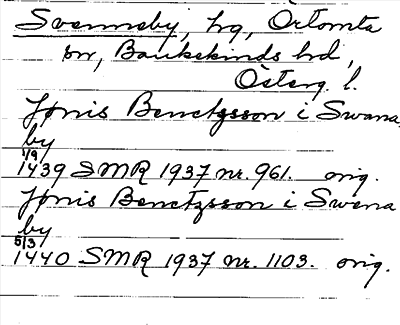 Svennsby, hg, Örtomta
sn, Bankekinds hd,
Österg. l.
Jønis Benctzsson i Swena
by
1/9
1439 SMR 1937 nr. 961. orig.
Jønis Benctzsson i Swena
by
5/3
1440 SMR 1937 nr. 1103. orig.